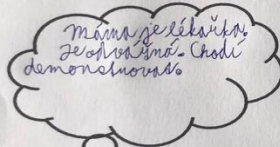 Máma je lékařka.
Je odvážná. Chodí
demonstrovat.